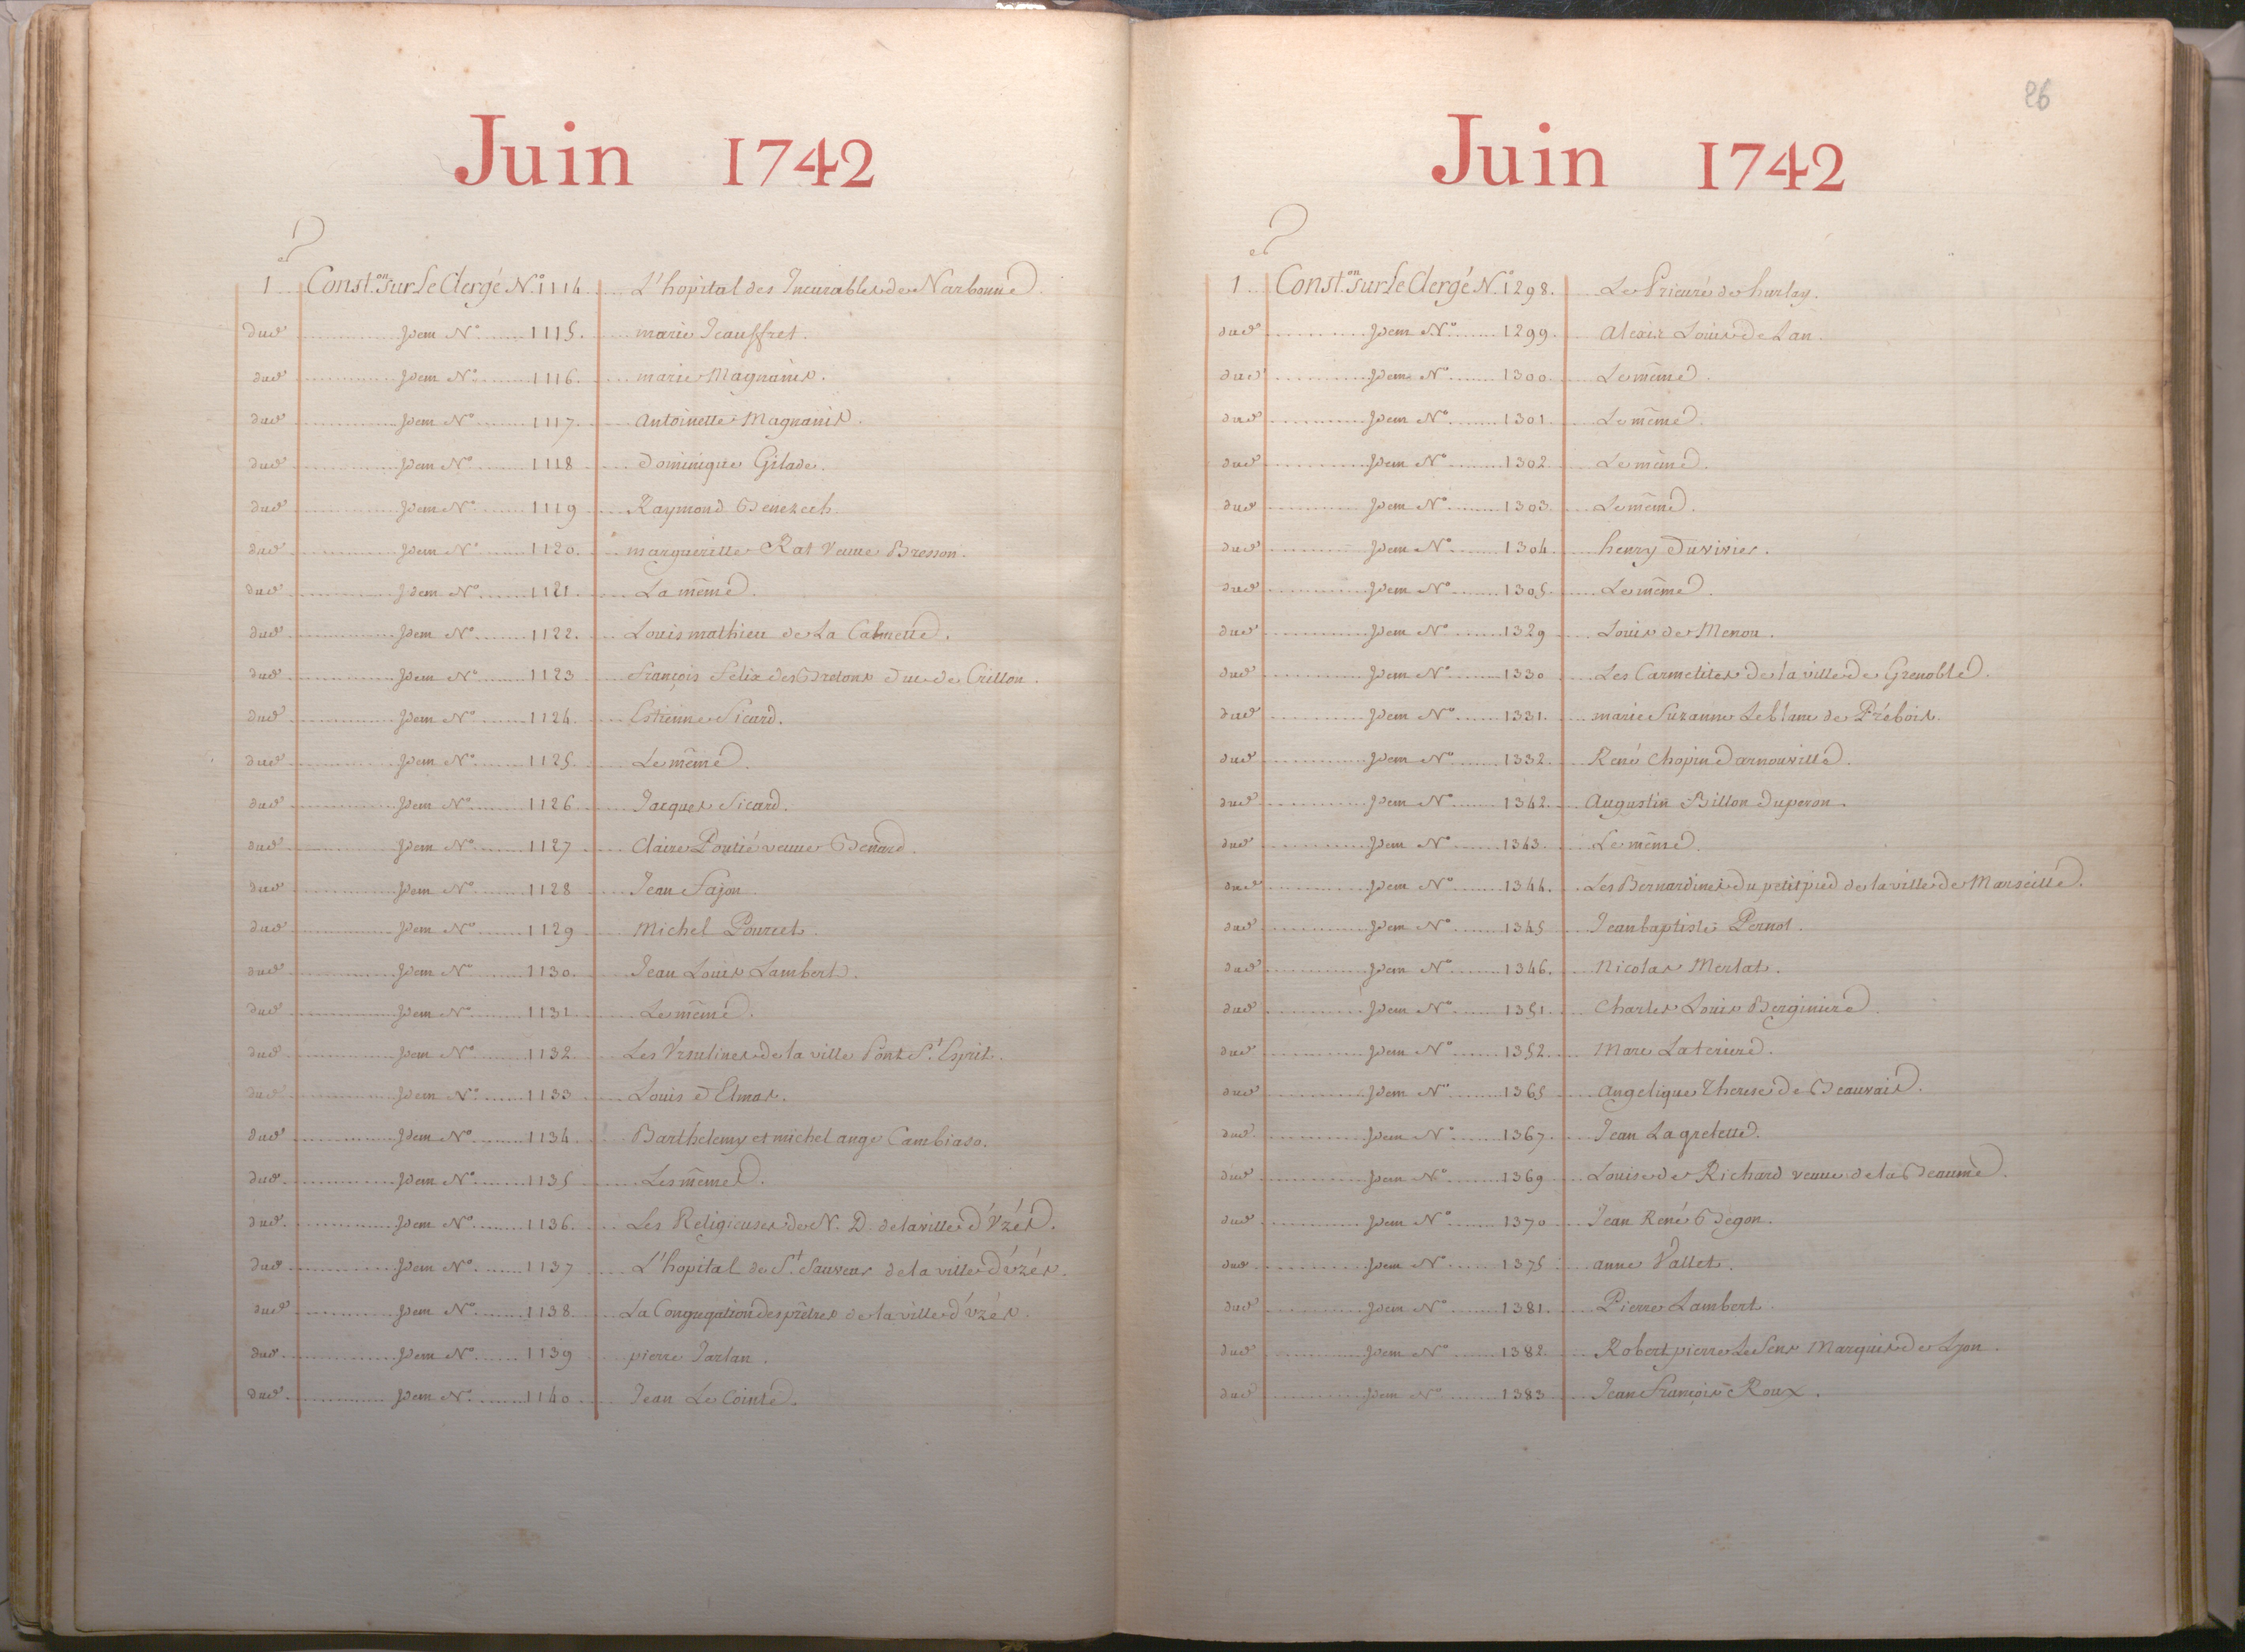 Juin 1742
1 Const.on Sur Le Clergé N.o 1114. L'hopital des Incurables de Narbonne
dud Idem N.o 1115. marie Jauffret.
dud Idem N.o 1116. marie Magnanis.
dud Idem N.o 1117. antoinette Magnanis.
dud Idem N.o 1118 Dominique Gilade.
dud Idem N.o 1119 Raymond Benezech.
dud Idem N.o 1120. marguerilte Rat Veuve Bresson.
dud Idem N.o 1121. La même.
dud Idem N.o 1122. Louis mathieu de La Calmette.
dud Idem N.o 1123 françois Felix des Bretons Duc de Crillon.
dud Idem N.o 1124. Estienne Sicard.
dud Idem N.o 1125. Le même.
dud Idem N.o 1126 Jacques Sicard.
dud Idem N.o 1127 Claire Poutié veuve Benard.
dud Idem N.o 1128 Jean Fajon
dud Idem N.o 1129 Michel Pourcet.
dud Idem N.o 1130. Jean Louis Lambert.
dud Idem N.o 1131. Le même.
dud Idem N.o 1132. Les Vrsulines de la ville Pont S.t Esprit.
dud Idem N.o 1133 Louis D'Elmas.
dud Idem N.o 1134 Barthelemy et michel ange Cambiaso.
dud Idem N.o 1135 Les mêmes.
dud Idem N.o 1136. Les Religieuses de N. D. de la ville d'Vzés.
dud Idem N.o 1137 L'hopital de S.t Sauveur de la ville d'uzés.
dud Idem N.o 1138. La Congregation des prêtres de la ville d'uzés.
dud Idem N.o 1139 pierre Tarlan.
dud Idem N.o 1140. Jean Le Cointe.
26
Juin 1742
1 Const.on Sur Le Clergé N.o 1298. Le Prieuré de hurlay.
dud Idem N.o 1299. Alexis Louis De Lan.
dud Idem N.o 1300. Le même.
dud Idem N.o 1301. Le même.
dud Idem N.o 1302. Le même.
dud Idem N.o 1303. Le même.
dud Idem N.o 1304. henry Duvivier.
dud Idem N.o 1305. Le même.
dud Idem N.o 1329 Louis de Menou.
dud Idem N.o 1330 Les Carmelites de la ville de Grenoble.
dud Idem N.o 1331. marie Suzanne Leblanc de Prébois.
dud Idem N.o 1332. René Chopin Darnouville.
dud Idem N.o 1342. Augustin Billon Duperon.
dud Idem N.o 1343. Le même.
dud Idem N.o 1344. Les Bernardines du petit pied de la ville de Marseille.
dud Idem N.o 1345 Jean baptiste Pernot.
dud Idem N.o 1346. Nicolas Merlat.
dud Idem N.o 1351. Charles Louis Berginiere
dud Idem N.o 1352. Marc Lateriere.
dud Idem N.o 1365 angelique Therese De Beauvais.
dud Idem N.o 1367. Jean Lagrelette.
dud Idem N.o 1369 Louise de Richard veuve de la Beaume.
dud Idem N.o 1370 Jean René Begon.
dud Idem N.o 1375 anne Vallet.
dud Idem N.o 1381. Pierre Lambert.
dud Idem N.o 1382. Robert pierre Le Sens Marquis de Lyon.
dud Idem N.o 1383 Jean François Roux.